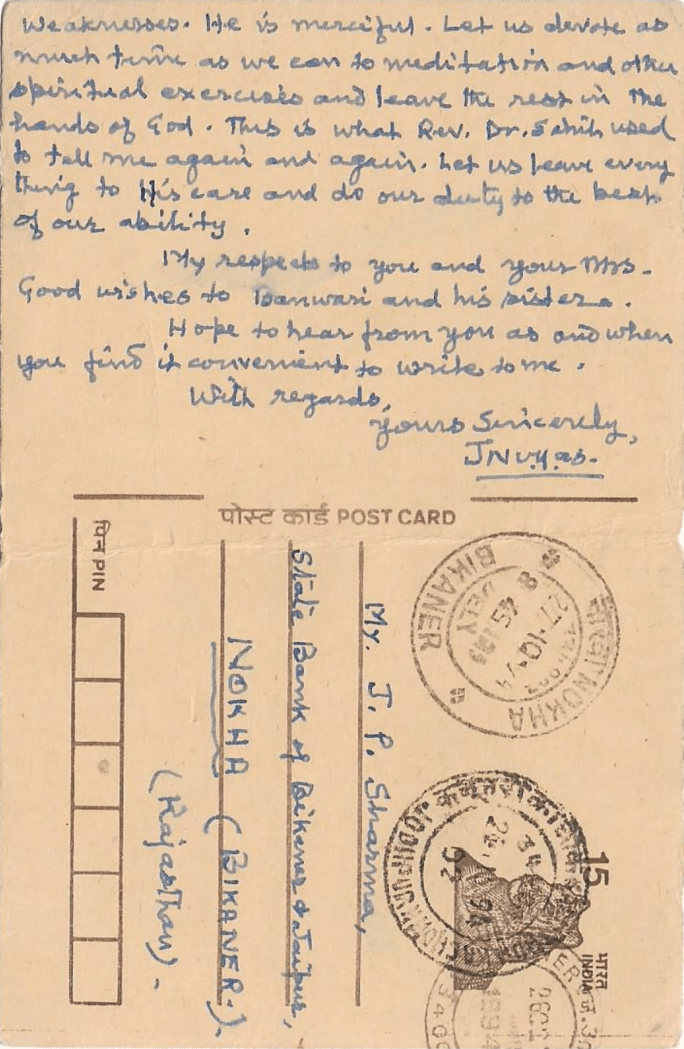 weaknesses. He is merciful. Let us devote as
much time as we can to meditation and other
spiritual exercises and leave the rest in the
hands of God. This is what Rev. Dr. Sahib used
to tell me again and again. Let us leave every
thing to His care and do our duty to the best
of our ability.
My respects to you and your Mrs.
Good wishes to Banwari and his sisters.
Hope to hear from you as and when
you find it convenient to write to me.
With regards,
Yours Sincerely,
JNVyas.
पोस्ट कार्ड POST CARD
पिन PIN
My. J. P. Sharma,
State Bank of Bikaner & Jaipur,
NOKHA (BIKANER.).
(Rajasthan).
नोखा NOKHA
BIKANER
8
DELY
27-10-94
15
भारत
INDIA
JODHPUR
94
1994